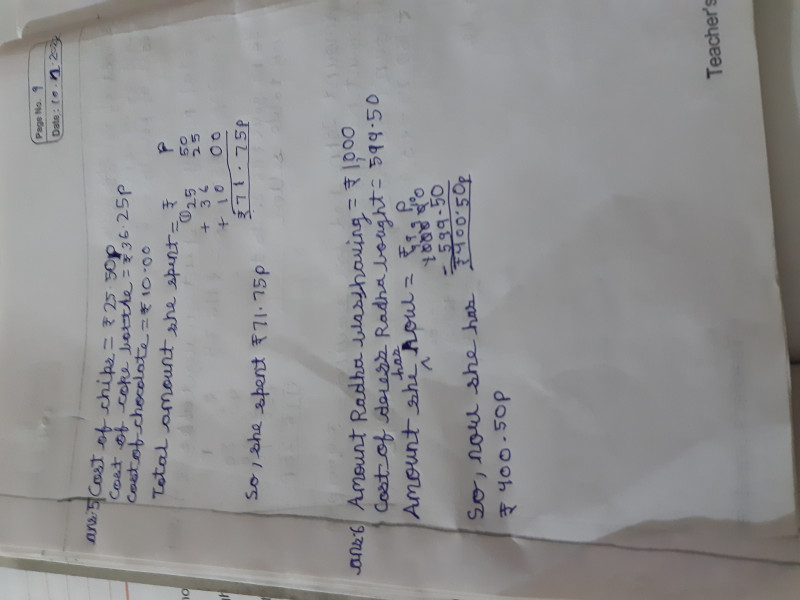 Page No. 9
Date: 10.11.202
ans:5 Cost of chips = ₹25.50p
Cost of coke bottle = ₹36.25p
Cost of chocolate = ₹10.00
Total amount she spent = ₹ P
① 25 50
+ 36 25
+ 10 00
₹71.75p
So, she spent ₹71.75p
ans:6 Amount Radha was having = ₹1,000
Cost of dress Radha bought = 599.50
Amount she has now = ₹ P
1000 00
- 599.50
₹400.50p
So, now she has
₹400.50p
Teacher's